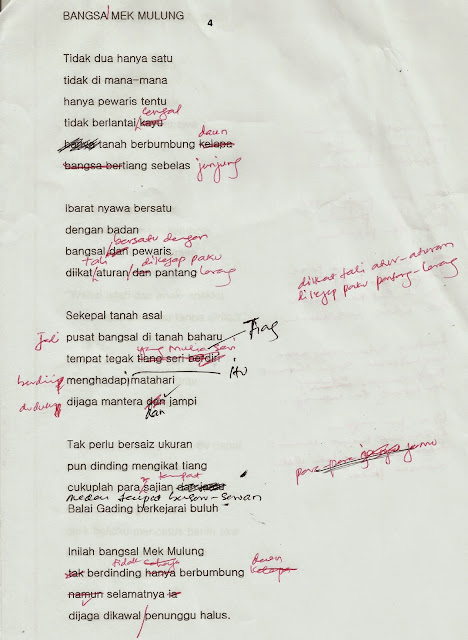 BANGSAL MEK MULUNG
4
Tidak dua hanya satu
tidak di mana-mana
hanya pewaris tentu
cengal
tidak berlantai kayu
daun
tanah berbumbung kelapa
bangsa bertiang sebelas junjung
Ibarat nyawa bersatu
dengan badan
bersatu dengan
bangsal dan pewaris
tali dikejap paku
diikat aturan dan pantang larang
diikat tali atur-aturan
dikejap paku pantang-larang
Sekepal tanah asal
Tiang
Jadi pusat bangsal di tanah baharu
yang Mulia Seri
tempat tegak tiang seri berdiri
itu
berdiri menghadapi matahari
duduk dijaga mantera dan jampi
dan
Tak perlu bersaiz ukuran
pun dinding mengikat tiang
tempat
cukuplah para sajian
para para
medan tempat
Balai Gading berkejarai buluh
Inilah bangsal Mek Mulung
tidak cahaya daun
tak berdinding hanya berbumbung kelapa
namun selamatnya ia
dijaga dikawal penunggu halus.